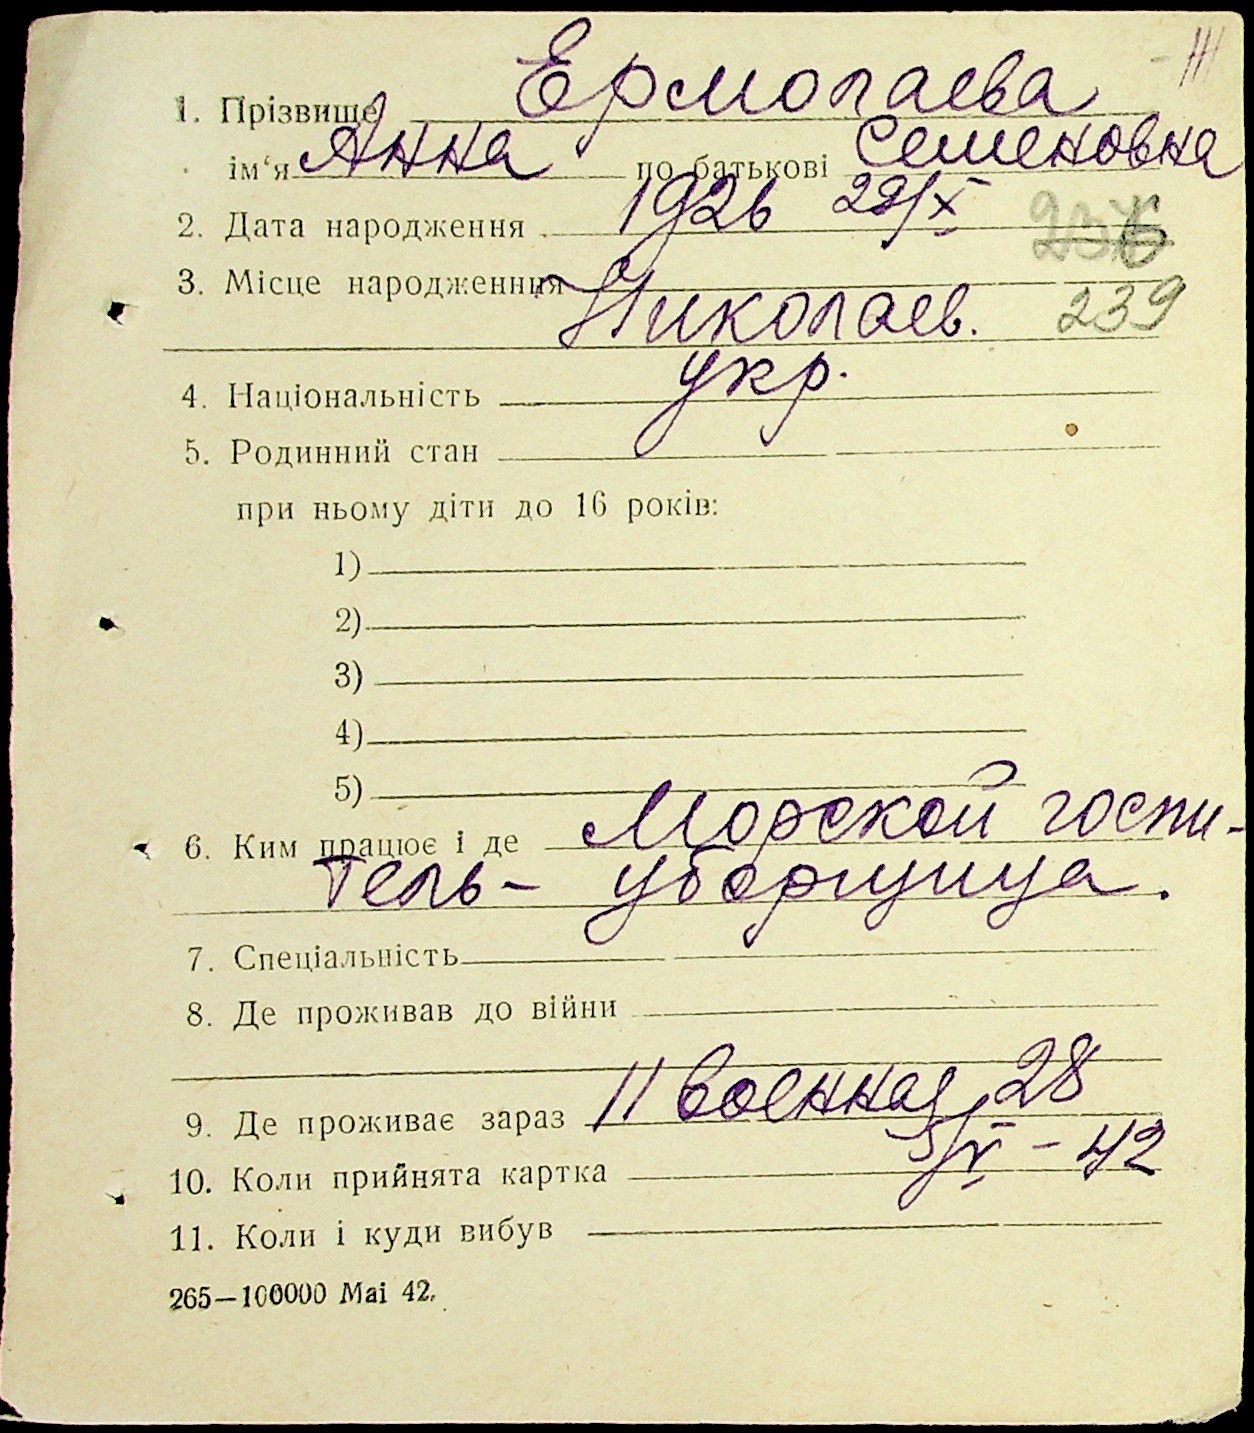 Ж
Ермолаева
1. Прізвище
ім‘я Анна по батькові Семеновна
2. Дата народження 1926 29/X
3. Місце народженння Николаев. 239
4. Національність укр.
5. Родинний стан
при ньому діти до 16 років:
1)
2)
3)
4)
5)
6. Ким працює і де Морской госпи-
тель- уборщица.
7. Спеціальність
8. Де проживав до війни
9. Де проживає зараз 11 Военная 28
10. Коли прийнята картка 5/V - 42
11. Коли і куди вибув
265—100000 Mai 42.